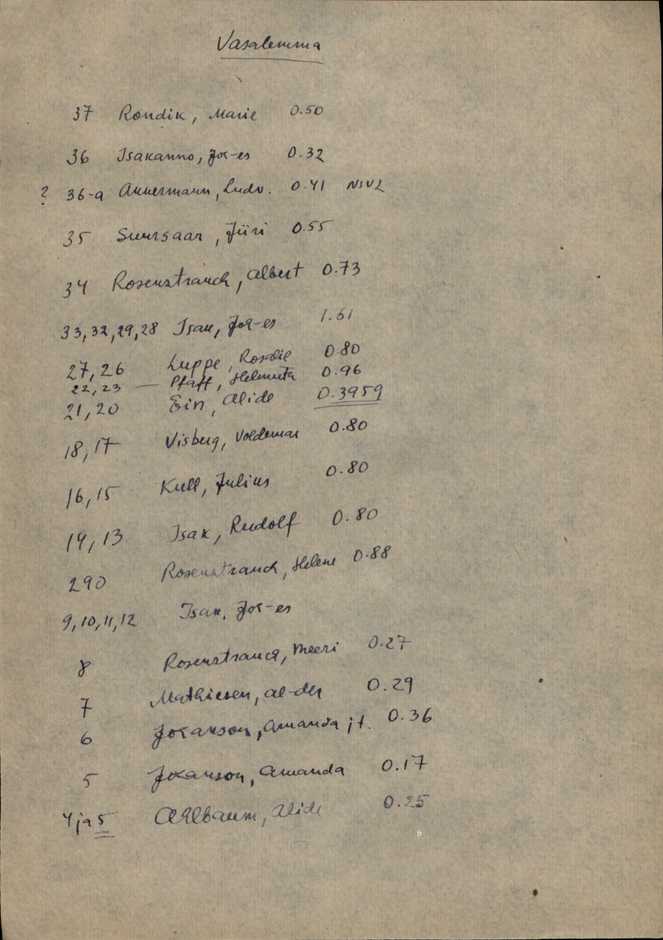 Vasalemma
37 Rondik, Marie 0.50
36 Isakanno, Joh-es 0.32
? 36-a Annermann, Ludv. 0.41
35 Suursaar, Jüri 0.55
34 Rosenstrauch, Albert 0.73
33, 32, 29, 28 Isak, Joh-es 1.61
27, 26 Luppe, Rosalie 0.80
22, 23 — Pfaff, Helmuta 0.96
21, 20 Ein, Alide 0.3959
18, 17 Visberg, Voldemar 0.80
16, 15 Kull, Julius 0.80
14, 13 Isak, Rudolf 0.80
290 Rosenstrauch, Helene 0.88
9, 10, 11, 12 Isak, Joh-es
8 Rosenstrauch, Meeri 0.27
7 Mathiesen, Al-der 0.29
6 Johanson, Amanda j.t. 0.36
5 Johanson, Amanda 0.17
4 ja 5 Ahlbaum, Alide 0.25